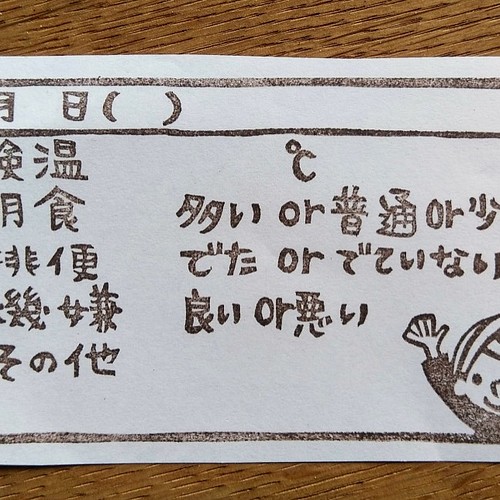 月 日( )
検温 ℃
朝食 多い or 普通 or 少
排便 でた or でていない
機嫌 良い or 悪い
その他